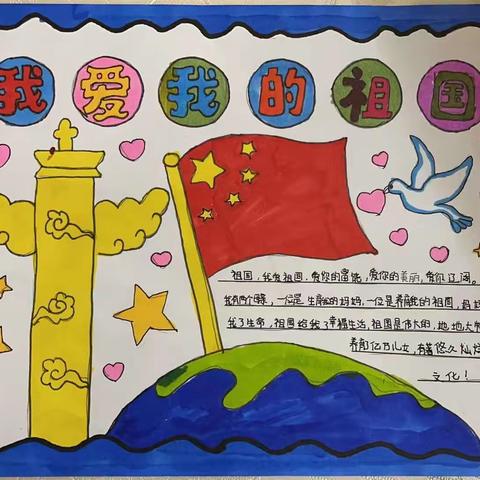 我爱我的祖国
祖国，我爱祖国，爱你的富饶，爱你的美丽，爱你辽阔。
我有两个母亲，一位是生育我的妈妈，一位是养育我的祖国，妈
我了生命，祖国给我了幸福生活，祖国是伟大的，她地大
养育亿万儿女，有着悠久灿
文化！